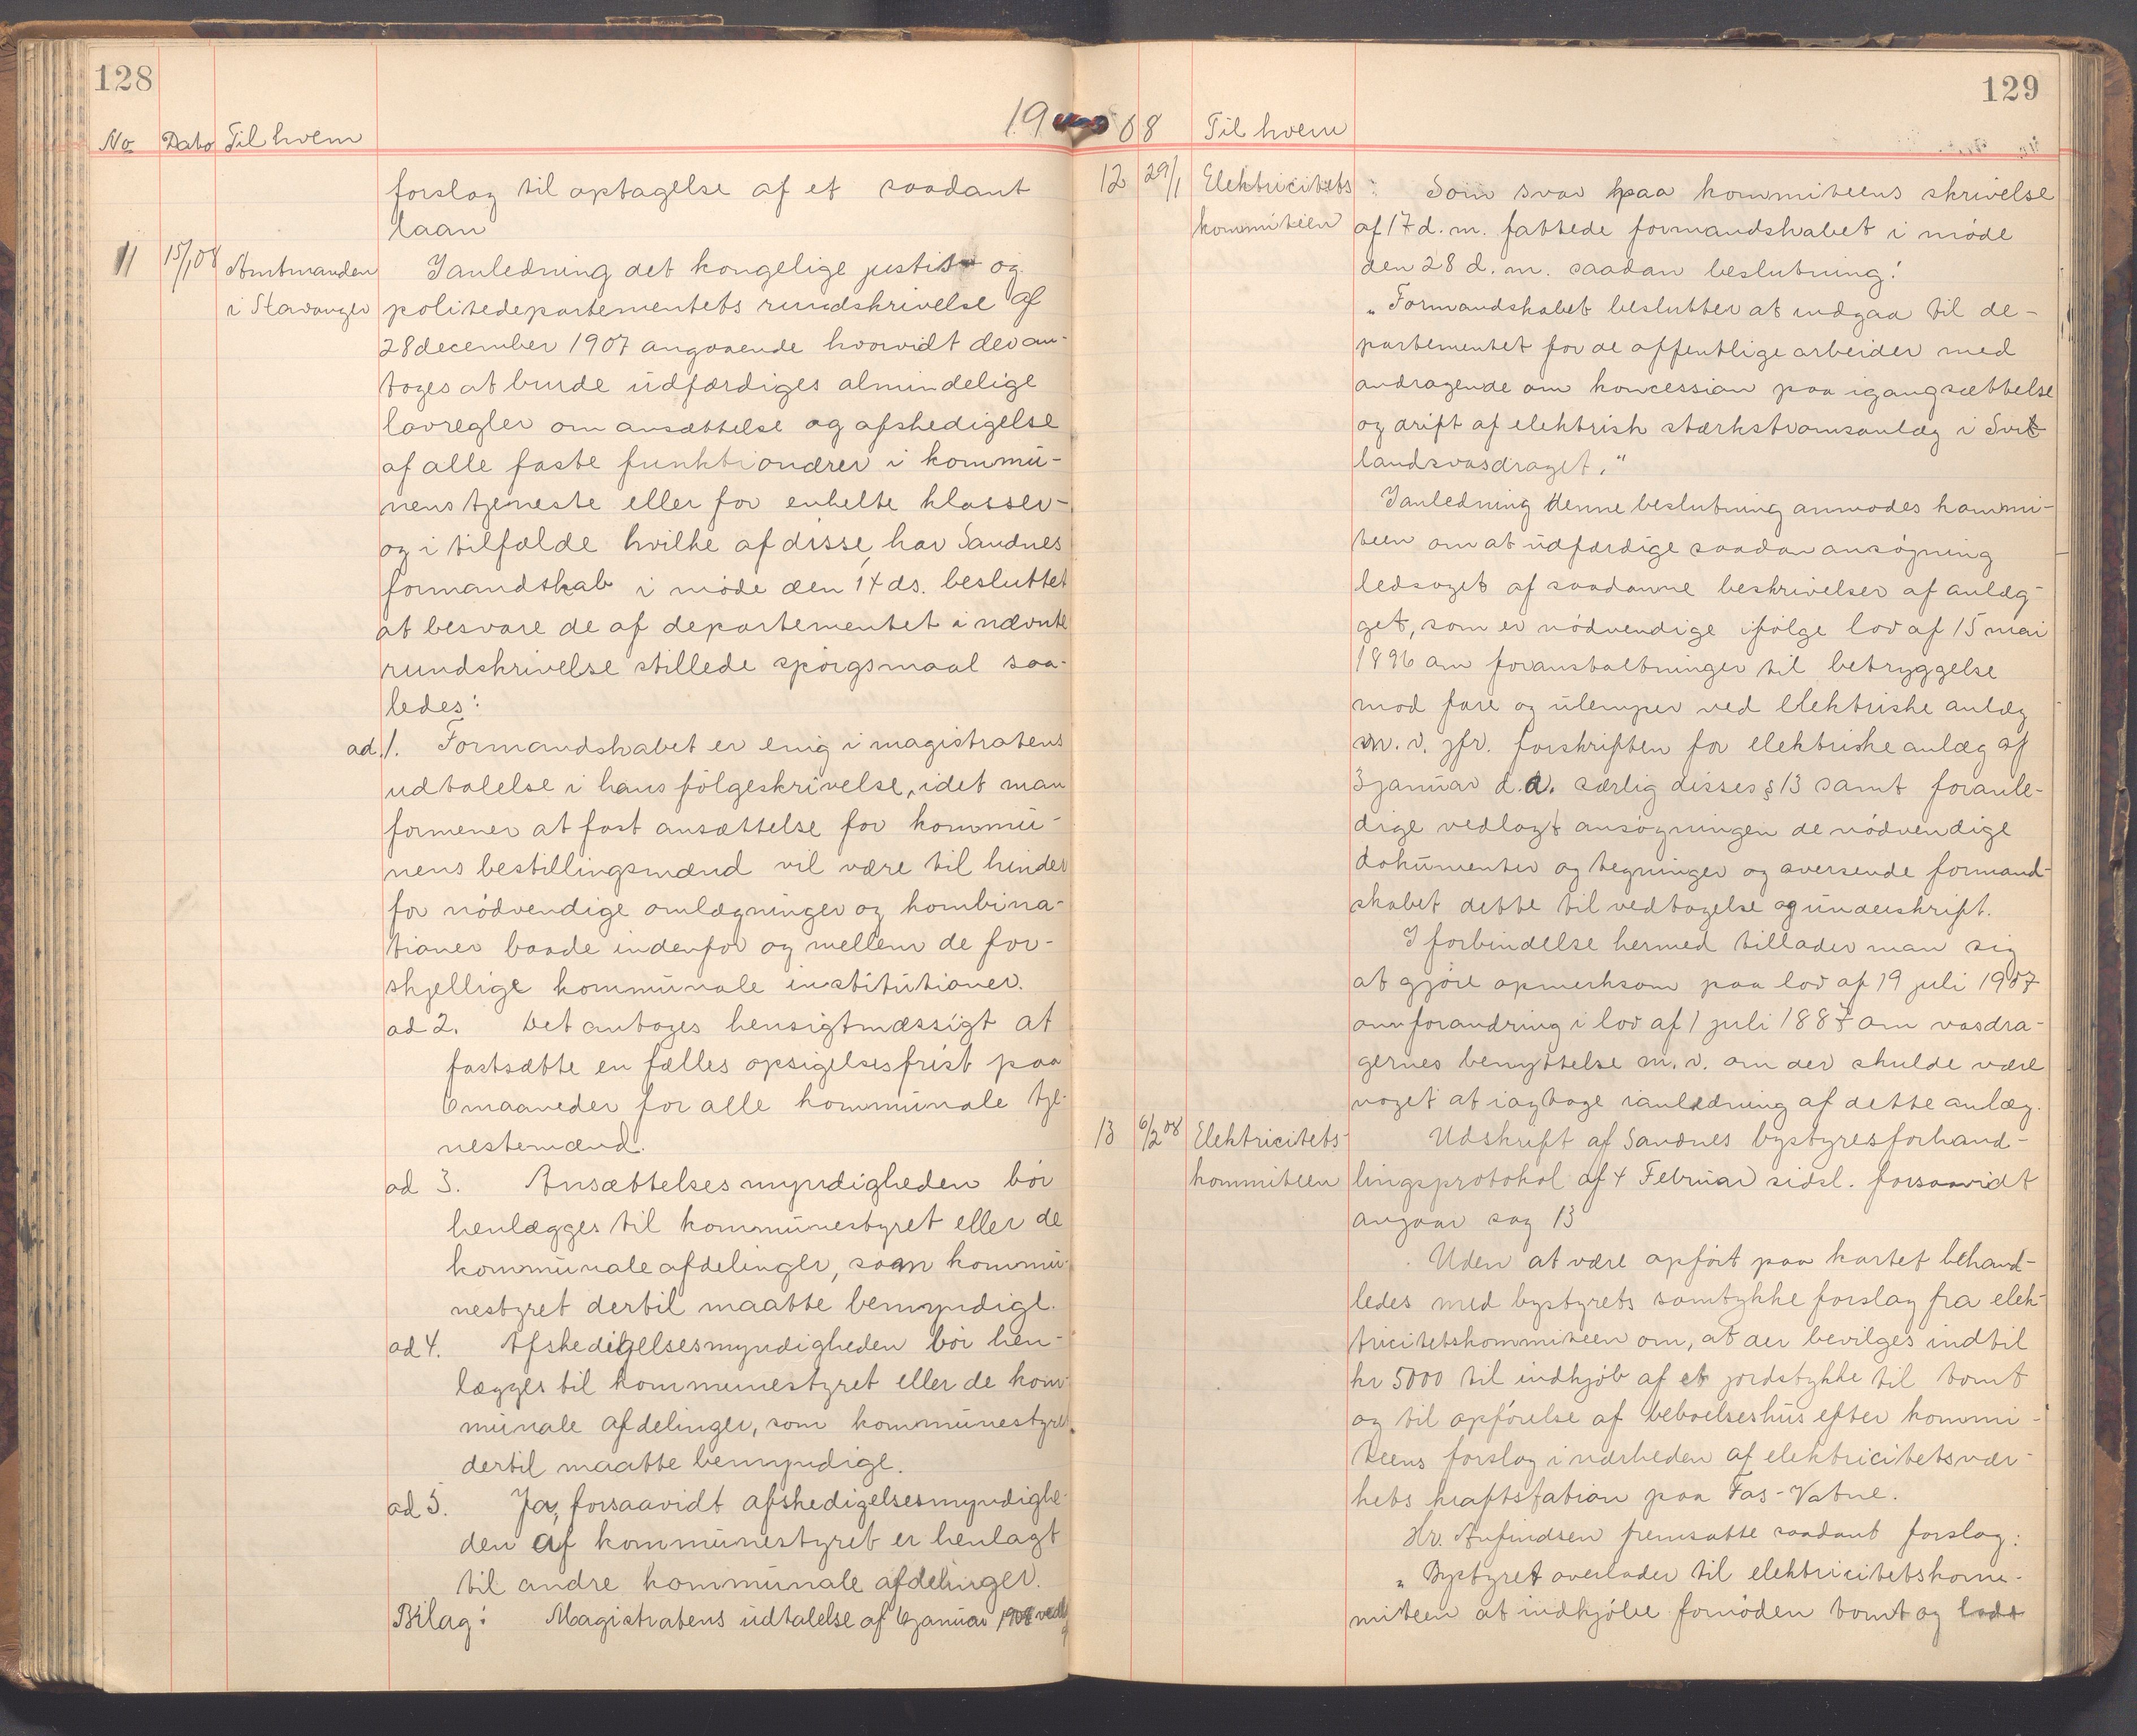 128
No Dato Til hvem 19
forslag til optagelse af et saadant
laan
11 15/1 08 Amtmanden i Stavanger
Ianledning det kongelige justits og
politedepartementets rundskrivelse af
28 december 1907 angaaende hvorvidt der an-
tages at burde udfærdiges almindelige
lovregler om ansættelse og afskedigelse
af alle faste funktionærer i kommu-
nens tjeneste eller for enkelte klasser -
og i tilfælde hvilke af disse, har Sandnes
formandskab i møde den 14 ds. besluttet
at besvare de af departementet i nævnte
rundskrivelse stillede spørgsmaal saa-
ledes:
ad. 1. Formandskabet er enig i magistratens
udtalelse i hans følgeskrivelse, idet man
formener at fast ansættelse for kommu-
nens bestillingsmænd vil være til hinder
for nødvendige omlægninger og kombina-
tioner baade indenfor og mellem de for-
skjellige kommunale institutioner.
ad 2. Det antages hensigtmæssigt at
fastsætte en fælles opsigelsesfrist paa
6 maaneder for alle kommunale tje-
nestemænd.
ad 3. Ansættelsesmyndigheden bør
henlægges til kommunestyret eller de
kommunale afdelinger, som kommu-
nestyret dertil maatte bemyndige.
ad 4. Afskedigelsesmyndigheden bør hen-
lægges til kommunestyret eller de kom-
munale afdelinger, som kommunestyret
dertil maatte bemyndige.
ad 5. Ja, forsaavidt afskedigelsesmyndighe-
den af kommunestyret er henlagt
til andre kommunale afdelinger.
Bilag: Magistratens udtalelse af 6 januar 1908 vedl
129
08 Til hvem
12 29/1 Elektricitets kommiteen
: Som svar paa kommiteens skrivelse
af 17 d. m. fattede formandskabet i møde
den 28 d. m. saadan beslutning:
„Formandskabet beslutter at indgaa til de-
partementet for de offentlige arbeider med
andragende om koncession paa igangsættelse
og drift af elektrisk stærkstrømsanlæg i Svi
landsvasdraget."
Ianledning denne beslutning anmodes kommi-
teen om at udfærdige saadan ansøgning
ledsaget af saadanne beskrivelser af anlæg-
get, som er nødvendige ifølge lov af 15 mai
1896 om foranstaltninger til betryggelse
mod fare og ulemper ved elektriske anlæg
m. v. jfr. forskriften for elektriske anlæg af
3 januar d.a. særlig disses § 13 samt foranle-
dige vedlagt ansøgningen de nødvendige
dokumenter og tegninger og oversende formand-
skabet dette til vedtagelse og underskrift.
I forbindelse hermed tillader man sig
at gjøre opmerksom paa lov af 19 juli 1907
om forandring i lov af 1 juli 1887 om vasdra-
gernes benyttelse m. v. om der skulde være
noget at iagtage ianledning af dette anlæg.
13 6/2 08 Elektricitets- kommiteen
Udskrift af Sandnes bystyresforhand-
lingsprotokol af 4 Februar sidsl. forsaavidt
angaar sag 13
Uden at være opført paa kartet behand-
ledes med bystyrets samtykke forslag fra elek-
tricitetskommiteen om, at der bevilges indtil
kr 5000 til indkjøb af et jordstykke til tomt
og til opførelse af beboelseshus efter kommi-
teens forslag i nærheden af elektricitetsvær-
kets kraftstation paa Fos-Vatne.
Hr. Anfindsen fremsatte saadant forslag:
„Bystyret overlader til elektricitetskom-
miteen at indkjøbe fornøden tomt og lade